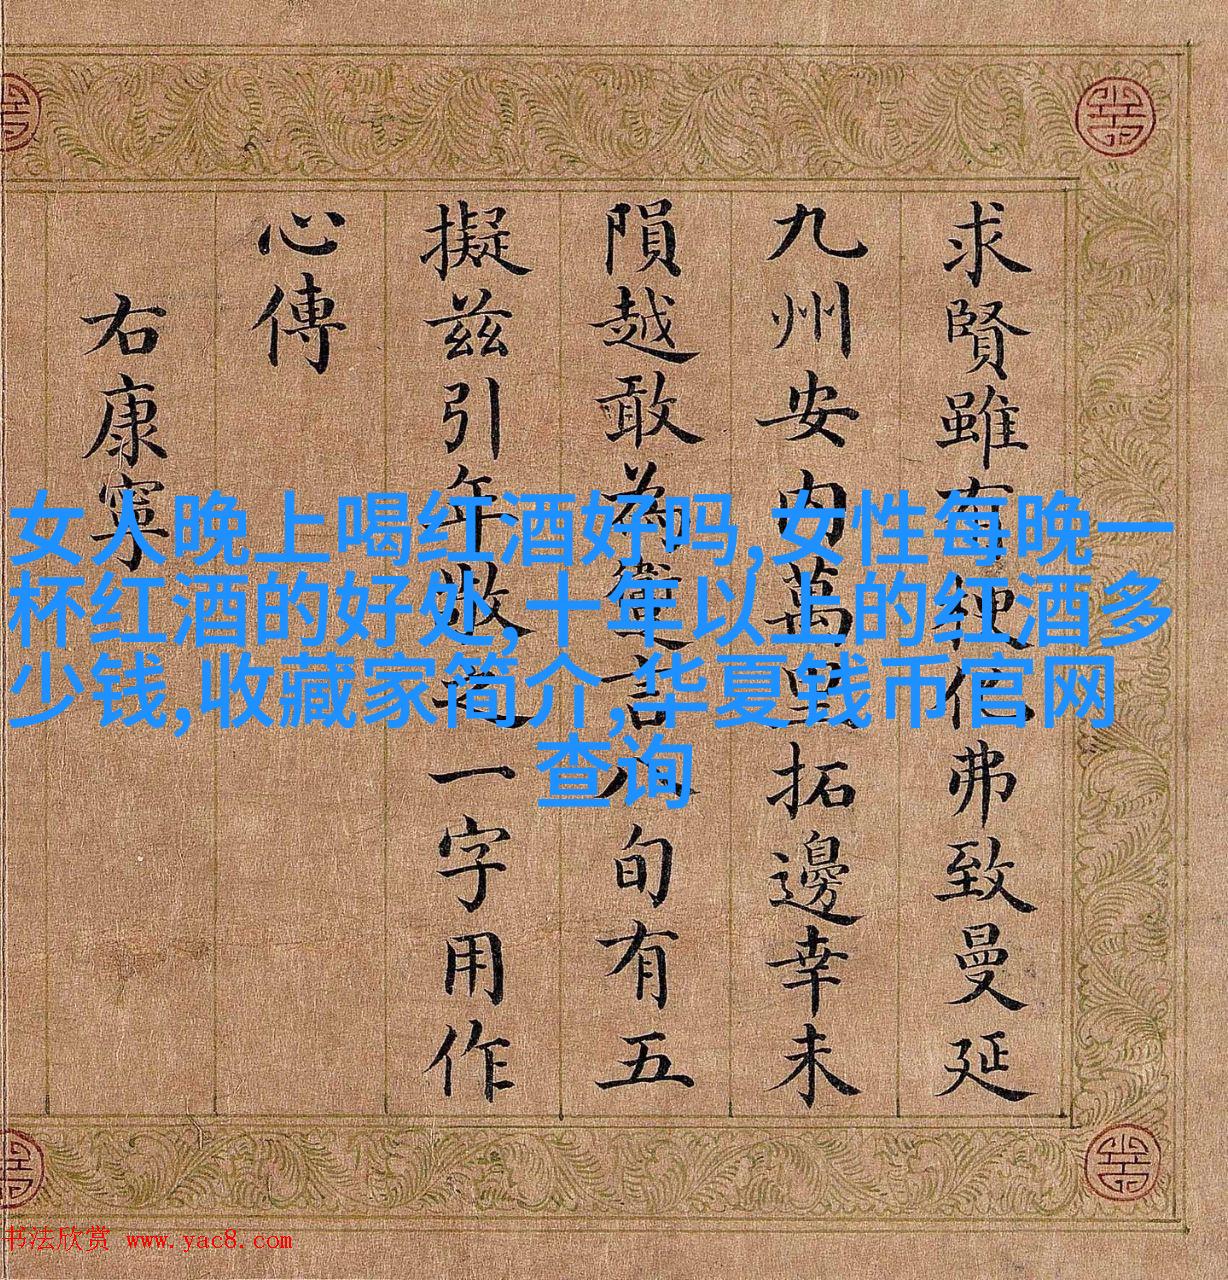 求賢雖有弗致曼延
九州安內萬里拓邊幸未
隕越敢為言八旬有五
擬茲引年敬一字用作
心傳
右康寧
女人晚上喝红酒好吗,女性每晚一
杯红酒的好处,十年以上的红酒多
少钱,收藏家简介,华夏钱币官网
查询
书法欣赏 www.yac8.com